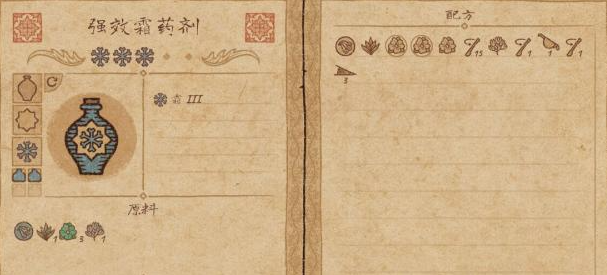 强效霜药剂
霜 III
原料
1 3 1
配方
15 1 1 1
3